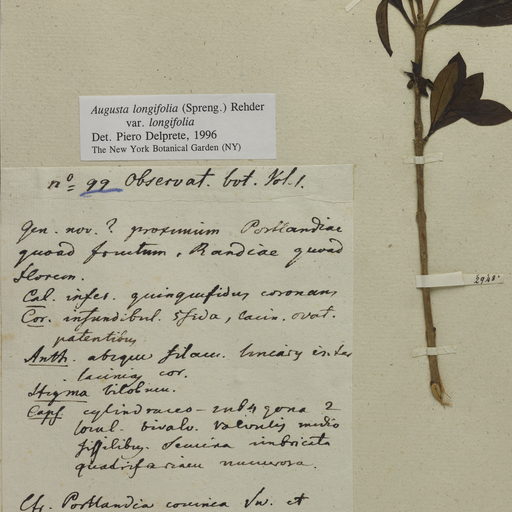 Augusta longifolia (Spreng.) Rehder
var. longifolia
Det. Piero Delprete, 1996
The New York Botanical Garden (NY)
nº 99 Observat. bot. Vol. 1.
Gen. nov.? proximum Portlandiae
quoad fructum, Randiae quoad
florem.
Cal. infer. quinquefidus coronans
Cor. infundibul. 5fida, lacin. ovat.
patentibus
Anth. absque filam. linears inter
lacinias cor.
Stigma bilobum.
Caps. cylindraceo-sub4gona 2
locul. bivalv. valvulis medio
fissilibus. Semina imbricata
quadrifariam numerosa.
Cfr. Portlandia Sw. et